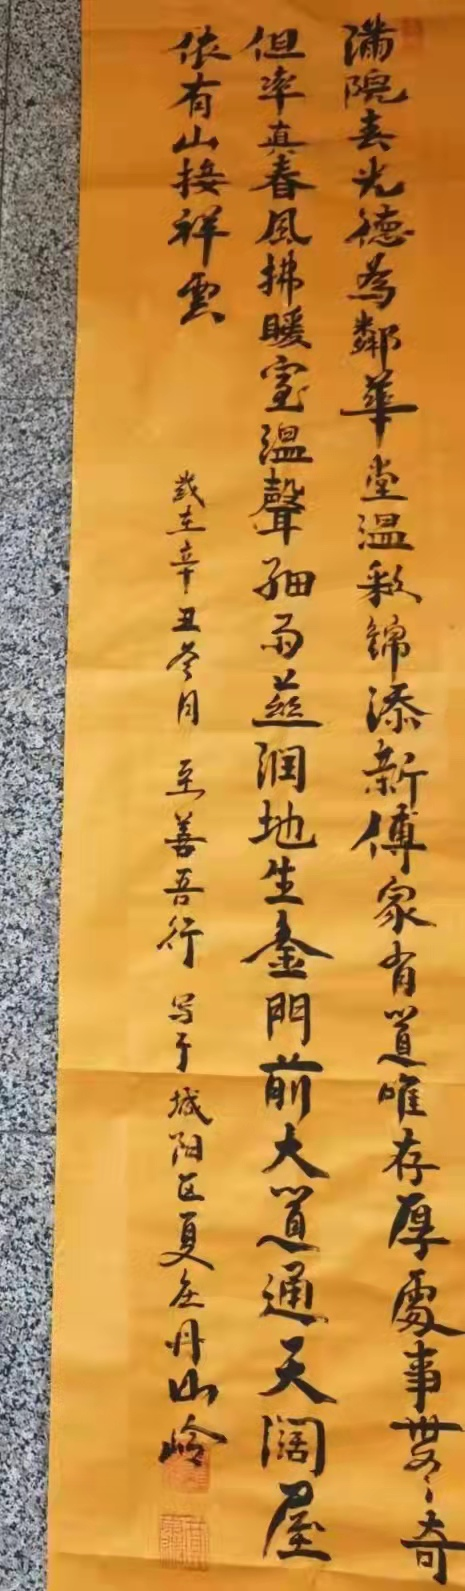 滿院春光德為鄰華堂温彩錦添新傳家有道唯存厚處事無奇
但率真春風拂暖室温聲細雨兹潤地生金門前大道通天闊屋
依有山接祥雲 歲在辛丑冬月 至善吾行 写于城阳区夏庄丹山岭